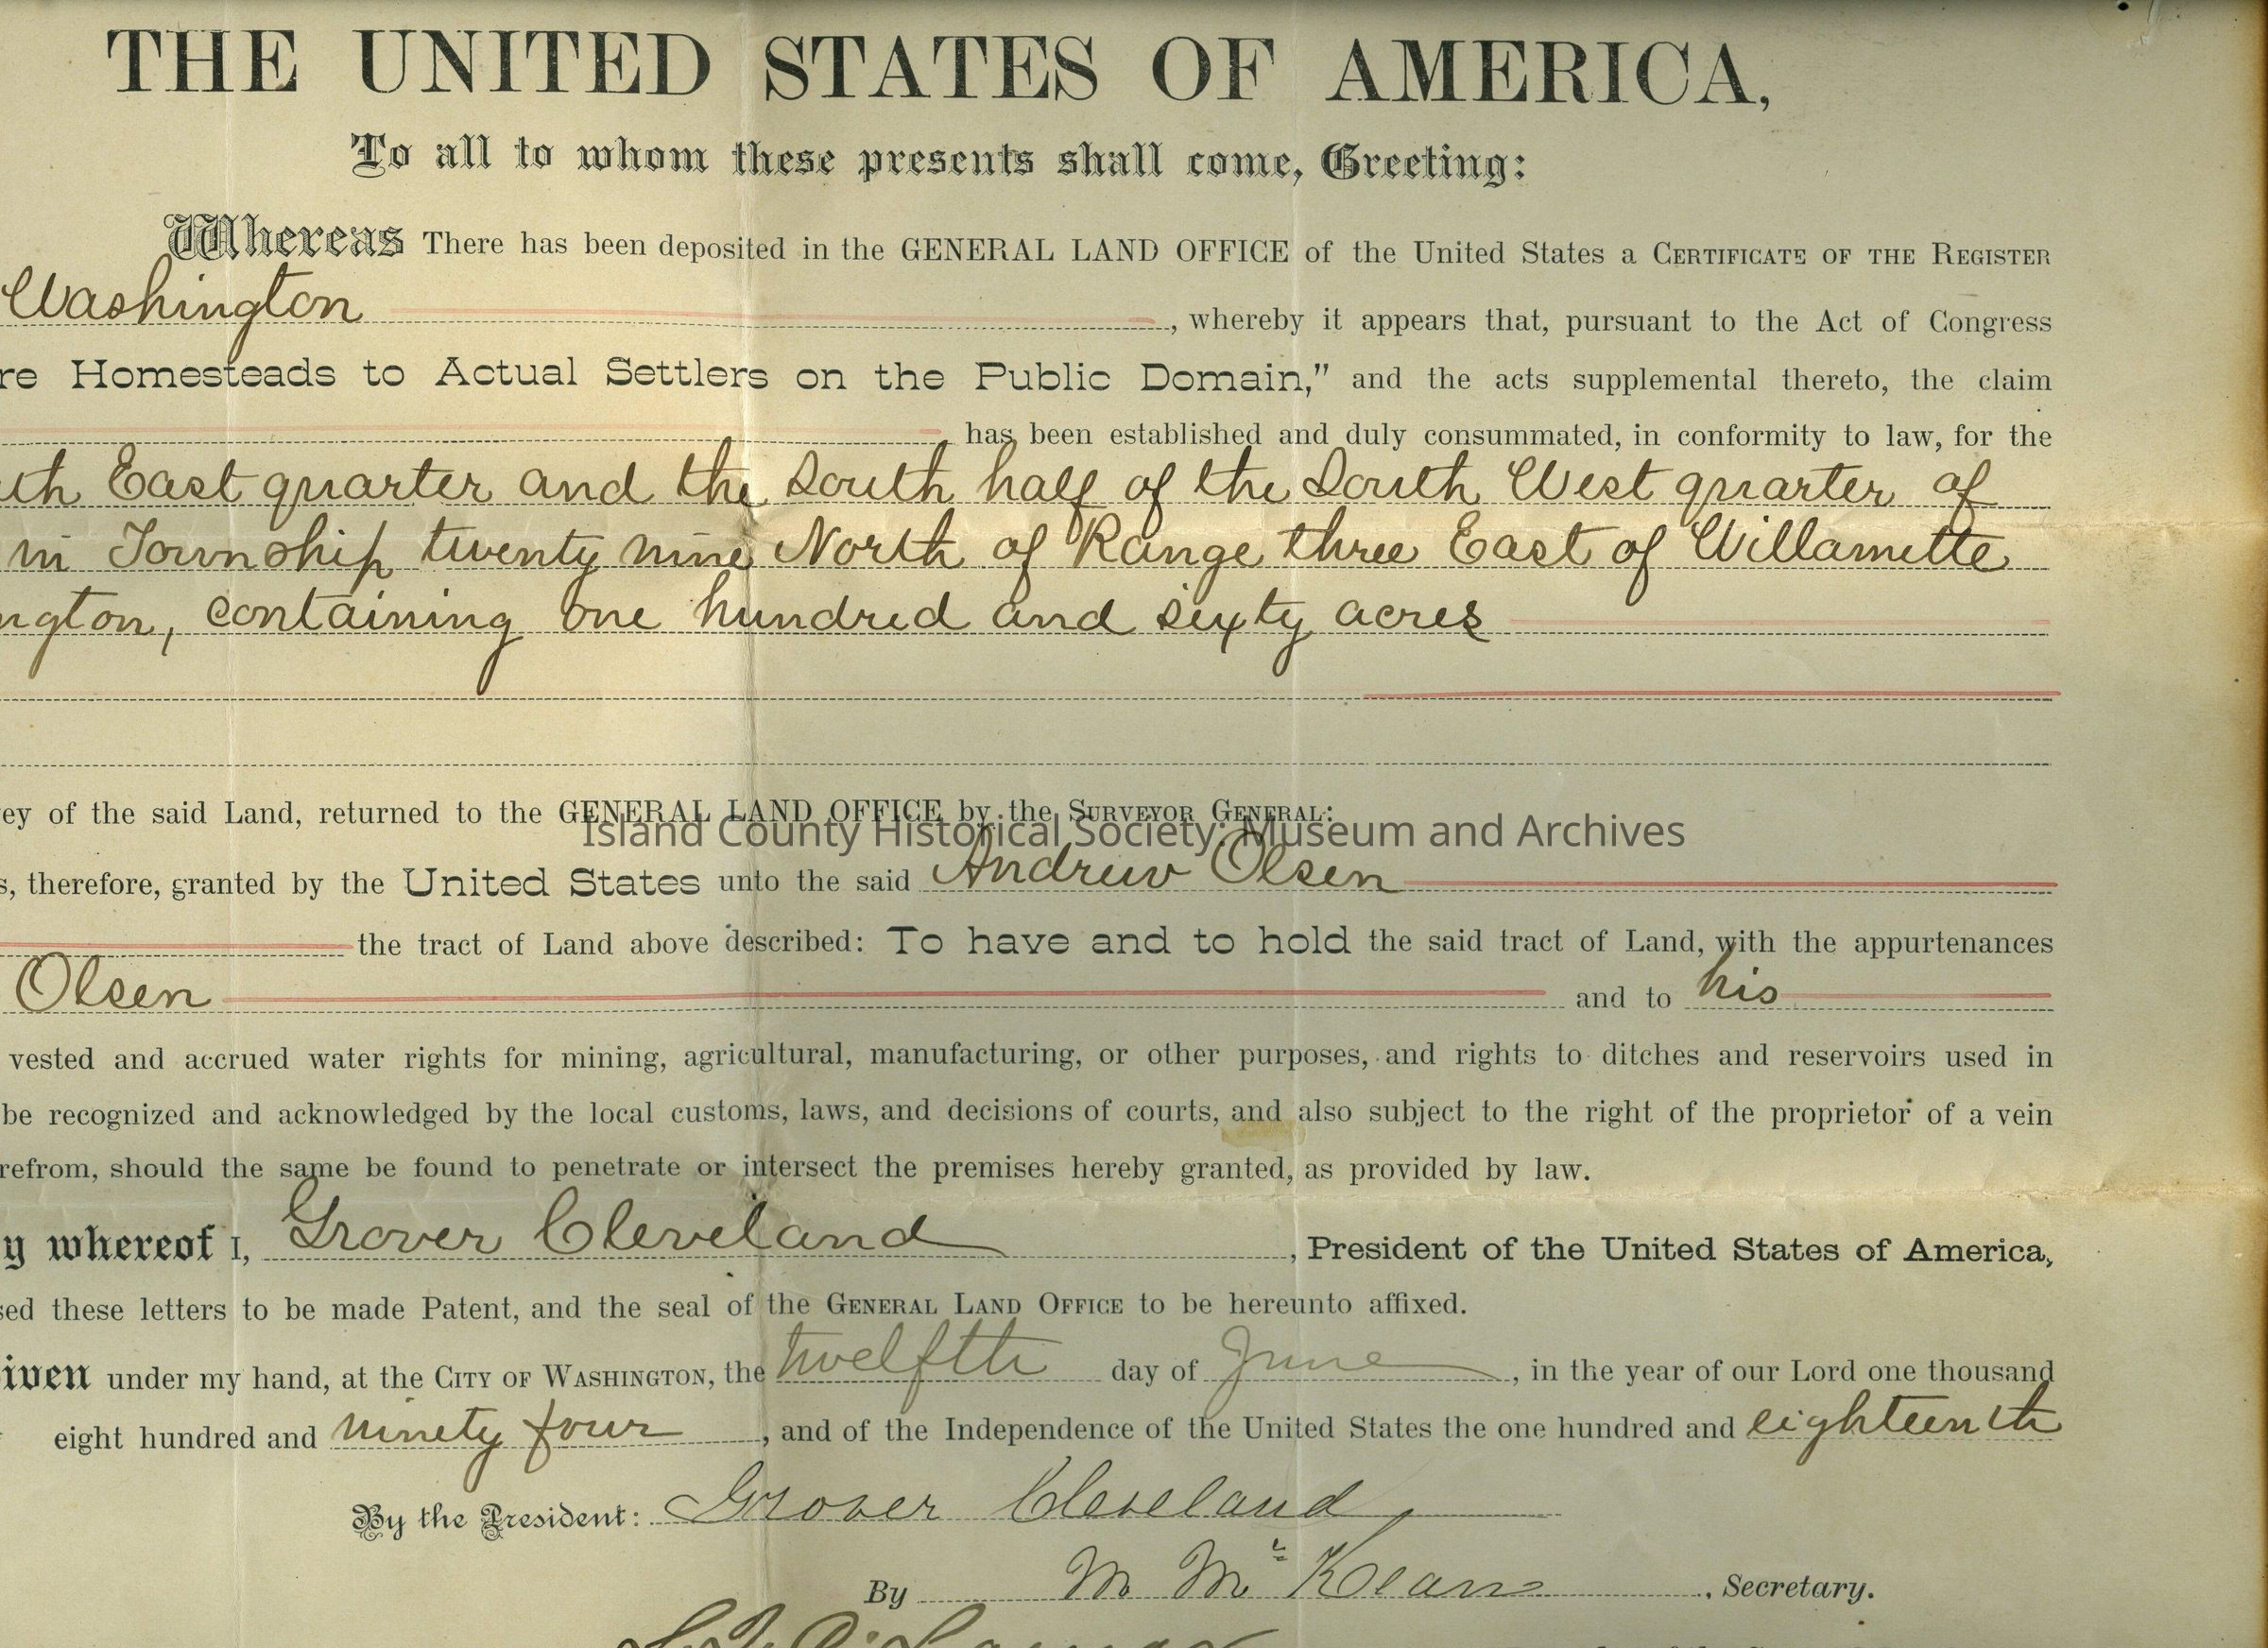 THE UNITED STATES OF AMERICA,
To all to whom these presents shall come, Greeting:
Whereas There has been deposited in the GENERAL LAND OFFICE of the United States a CERTIFICATE OF THE REGISTER
Washington , whereby it appears that, pursuant to the Act of Congress
re Homesteads to Actual Settlers on the Public Domain," and the acts supplemental thereto, the claim
has been established and duly consummated, in conformity to law, for the
uth East quarter and the South half of the South West quarter of
in Township twenty nine North of Range three East of Willamette
ngton, containing one hundred and sixty acres
ey of the said Land, returned to the GENERAL LAND OFFICE by the SURVEYOR GENERAL:
Island County Historical Society: Museum and Archives
s, therefore, granted by the United States unto the said Andrew Olsen
the tract of Land above described: To have and to hold the said tract of Land, with the appurtenances
Olsen and to his
vested and accrued water rights for mining, agricultural, manufacturing, or other purposes, and rights to ditches and reservoirs used in
be recognized and acknowledged by the local customs, laws, and decisions of courts, and also subject to the right of the proprietor of a vein
refrom, should the same be found to penetrate or intersect the premises hereby granted, as provided by law.
y whereof I, Grover Cleveland , President of the United States of America,
sed these letters to be made Patent, and the seal of the GENERAL LAND OFFICE to be hereunto affixed.
iven under my hand, at the CITY OF WASHINGTON, the twelfth day of June , in the year of our Lord one thousand
eight hundred and ninety four , and of the Independence of the United States the one hundred and eighteenth
By the President: Grover Cleveland
By M. McKean , Secretary.